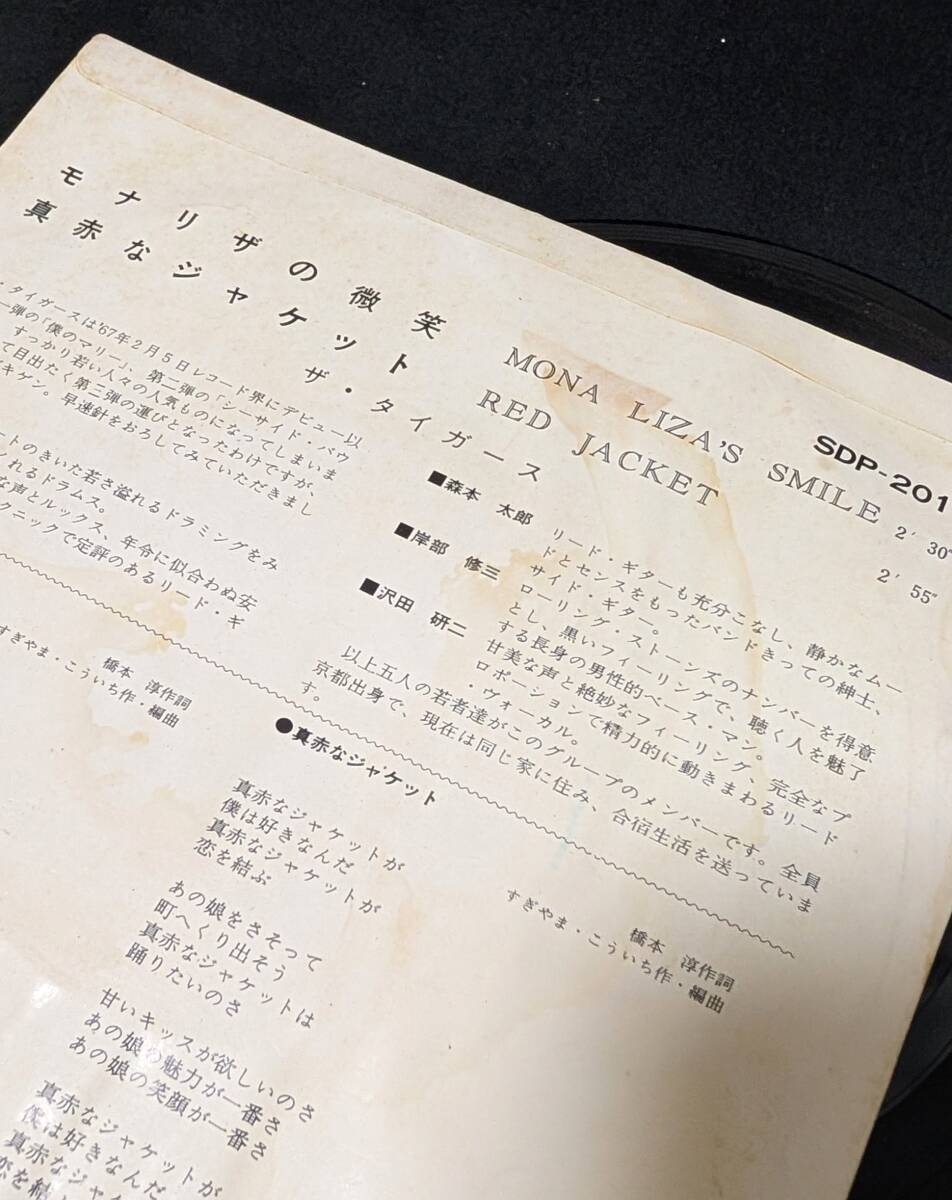 SDP-201
モナリザの微笑
真赤なジャケット
ザ・タイガース
MONA LIZA'S SMILE 2' 30"
RED JACKET 2' 55"
・タイガースは'67年2月5日レコード界にデビュー以
弾の「僕のマリー」、第二弾の「シーサイド・バウ
すっかり若い人々の人気ものになってしまいま
て目出たく第三弾の運びとなったわけですが、
キゲン。早速針をおろしてみていただきまし
ートのきいた若さ溢れるドラミングをみ
れるドラムス。
な声とルックス、年令に似合わぬ安
クニックで定評のあるリード・ギ
■森本 太郎 リード・ギターも充分こなし、静かなムー
ドとセンスをもったバンドきっての紳士、
サイド・ギター。
■岸部 修三 ローリング・ストーンズのナンバーを得意
とし、黒いフィーリングで、聴く人を魅了
する長身の男性的ベース・マン。
■沢田 研二 甘美な声と絶妙なフィーリング、完全なプ
ロポーションで精力的に動きまわるリード
・ヴォーカル。
以上五人の若者達がこのグループのメンバーです。全員
京都出身で、現在は同じ家に住み、合宿生活を送っていま
す。
橋本 淳作詞
すぎやま・こういち作・編曲
●真赤なジャケット
橋本 淳作詞
すぎやま・こういち作・編曲
真赤なジャケットが
僕は好きなんだ
真赤なジャケットが
恋を結ぶ
あの娘をさそって
町へくり出そう
真赤なジャケットは
踊りたいのさ
甘いキッスが欲しいのさ
あの娘の魅力が一番さ
あの娘の笑顔が一番さ
真赤なジャケットが
僕は好きなんだ
真赤なジャケットが
恋を結